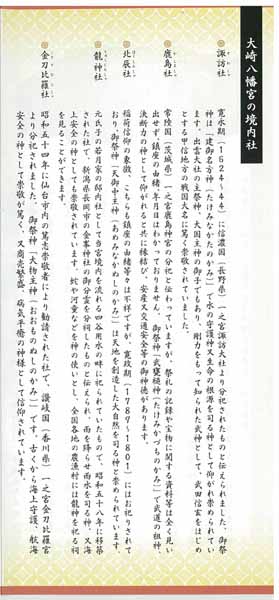 大崎八幡宮の境内社
諏訪社
寛永期（1624〜44）に信濃国（長野県）一之宮諏訪大社より分祀されたものと伝えられました。御祭
神は「建御名方神（たけみなかたのかみ）」で水の守護神又生命の根源を司る神として仰がれ崇められてい
ます。出雲大社の主祭神の大国主神の御子でもあり、剛力をもって知られた武神として、武田信玄をはじめ
とする甲信地方の戦国大名に篤く崇敬されていました。
鹿島社
常陸国（茨城県）一之宮鹿島神宮の分祀と伝わっていますが、祭礼の記録や宝物に関する資料等は全く見い
出せず、鎮座の由緒、年月日はわかっておりません。御祭神「武甕槌神（たけみかづちのかみ）」で武道の祖神、
決断力の神として仰がれると共に縁結び、安産又交通安全等の御神徳があります。
北辰社
稲荷信仰の象徴、こちらも鎮座の由緒等々は不詳ですが、寛政期（1789〜1801）にはお祀りされて
おり、御祭神「天御中主神（あめのみなかぬしのかみ）」は天地を創造した大自然を司る神と崇められています。
龍神社
元氏子の若月家の邸内社として当宮境内を流れる四谷用水の畔に祀られていたもので、昭和五十八年に移築
された社で、新潟県長岡市の金峯神社の御分霊を分祠したものと伝えられ、雨を降らせ雨水を司る神、又海
上安全の神としても崇められています。蛇や河童などを神の使いとし、全国各地の農漁村には龍神を祀る祠
を見ることができます。
金刀比羅社
昭和五十四年に仙台市内の篤志崇敬者により勧請された社で、讃岐国（香川県）一之宮金刀比羅宮
より分祀されました。御祭神「大物主神（おおものぬしのかみ）」です。古くから海上守護、航海
安全の神として崇敬が篤く、又商売繁盛、病気平癒の神様として信仰されています。